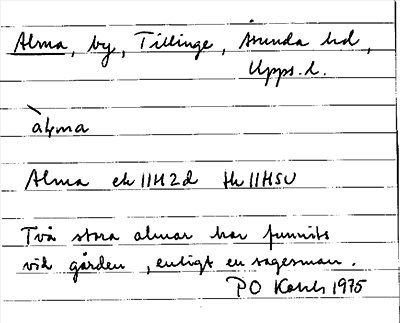 Alma, by, Tillinge, Åsunda hd,
Upps. l.
àlma
Alma ek 11H2d tk 11HSV
Två stora almar har funnits
vid gården, enligt en sagesman.
PO 1975